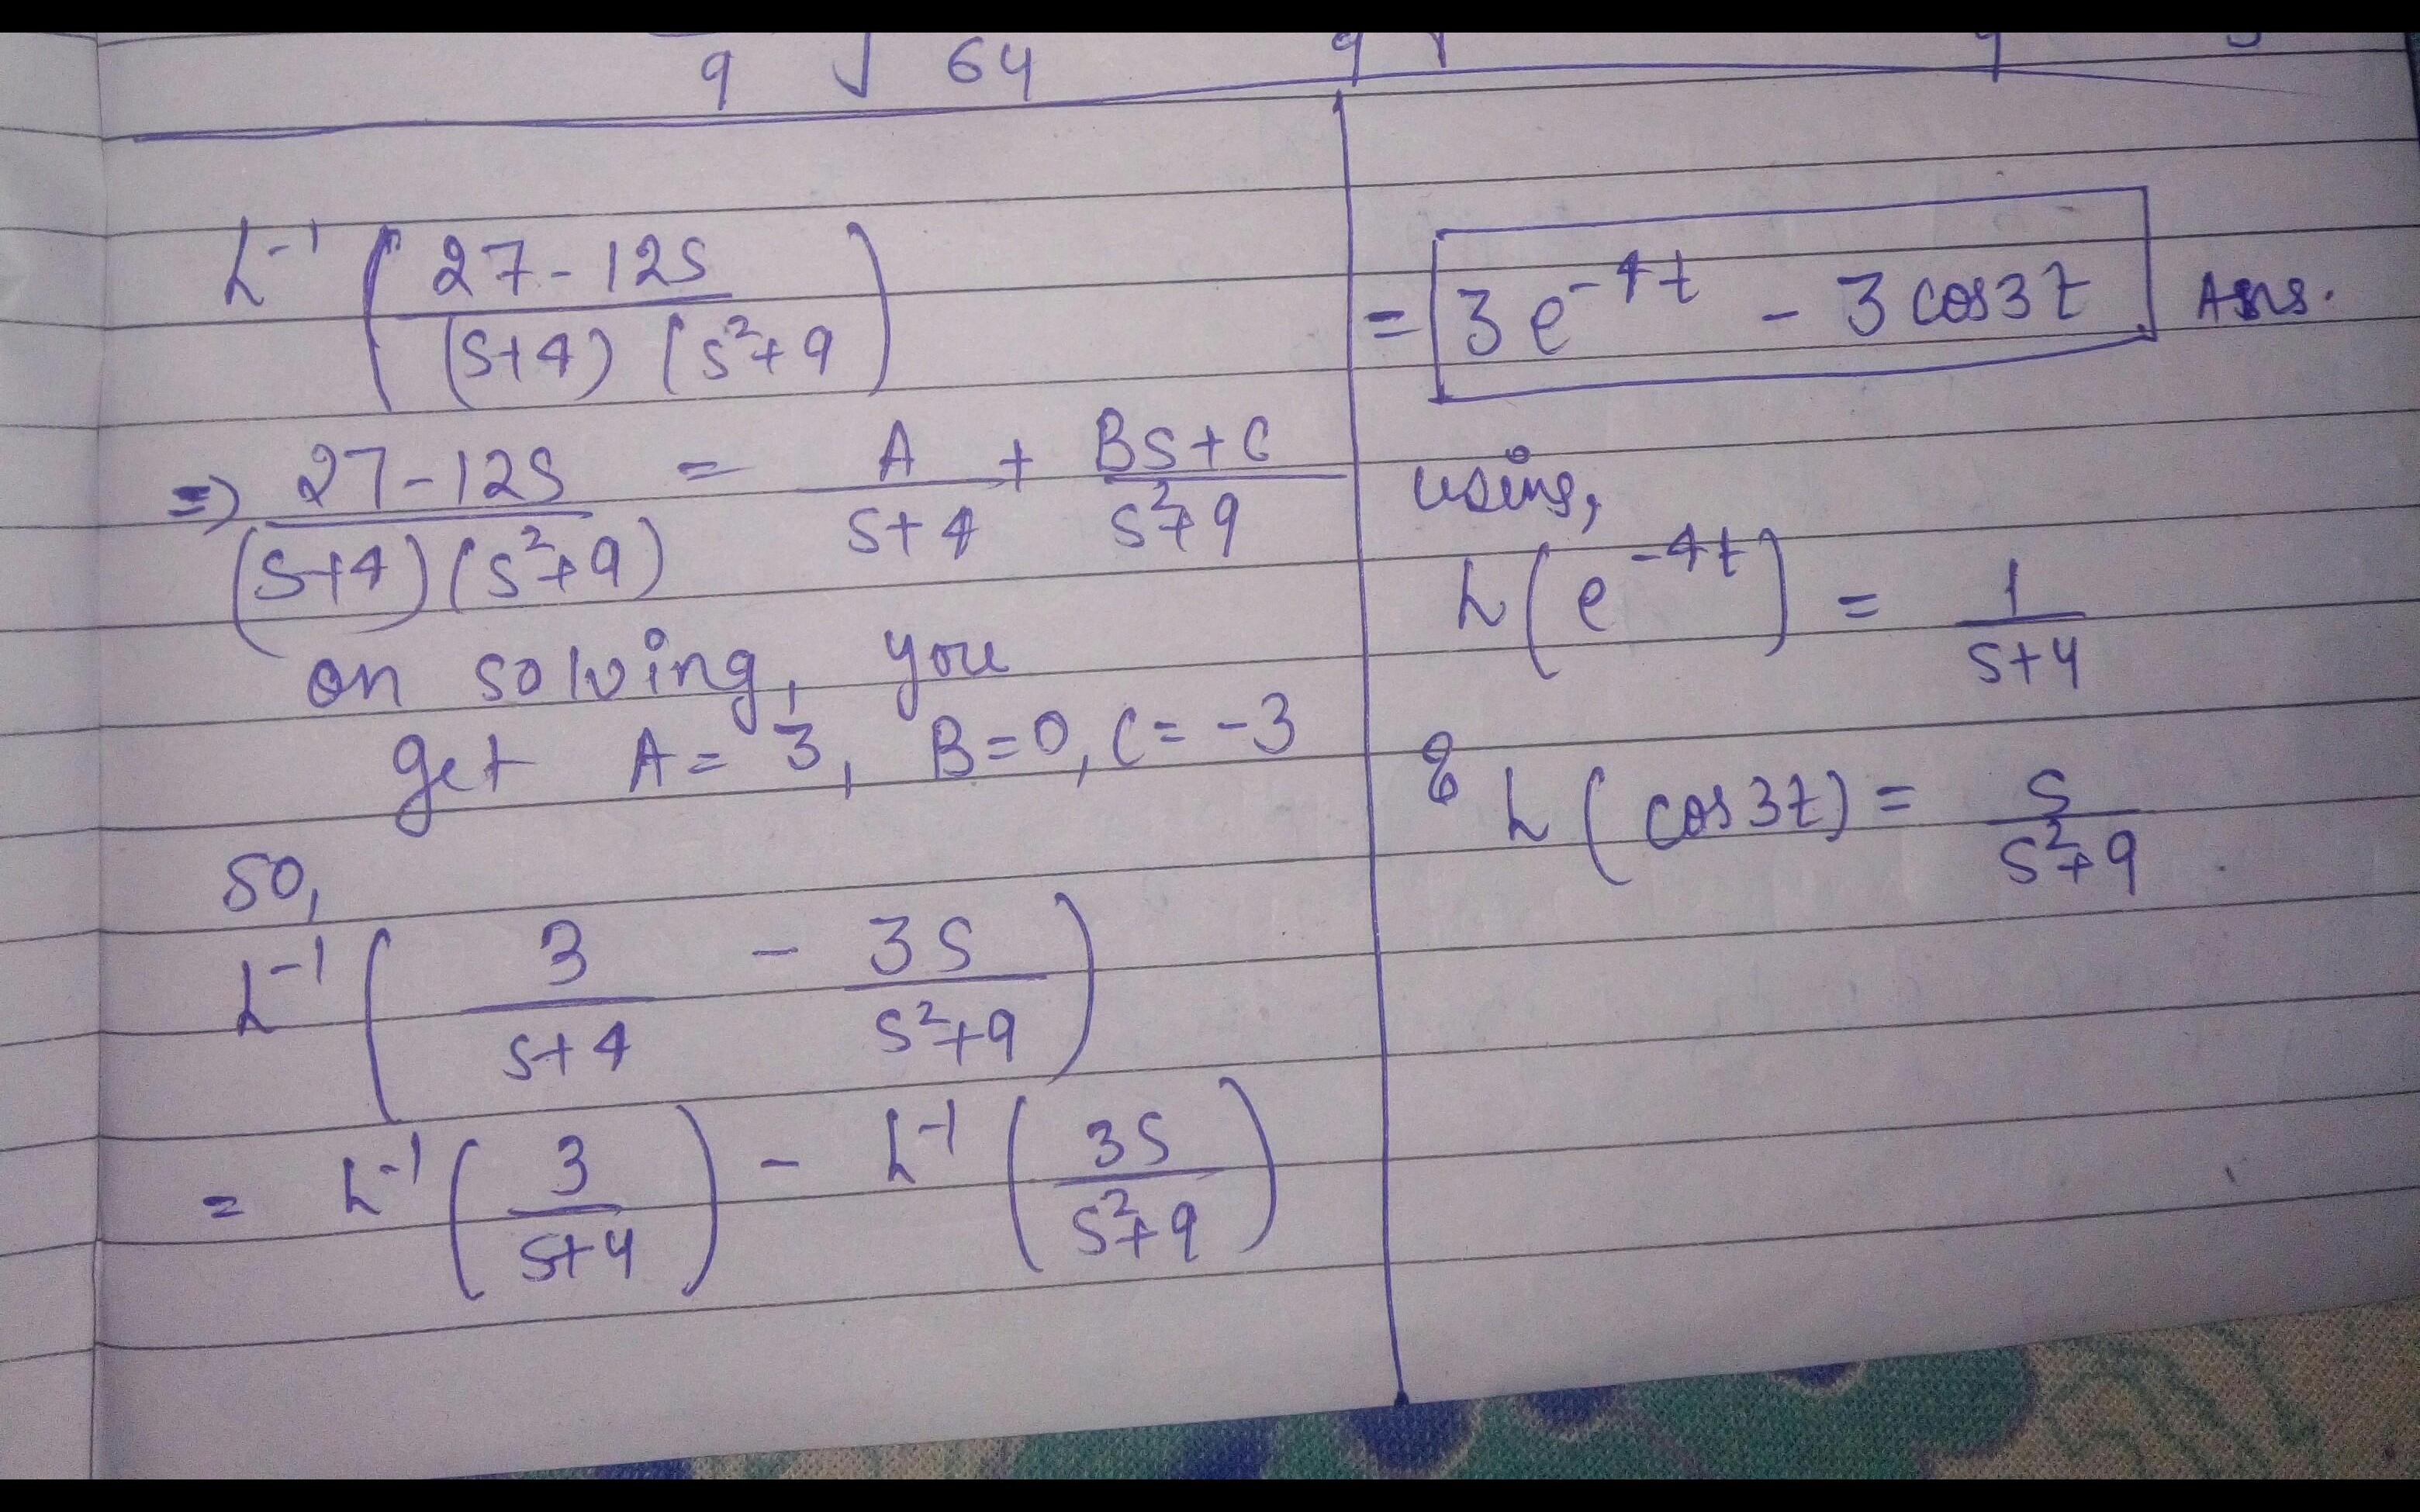 9 √ 64 9 9
L⁻¹ ( 27-12S / (S+4) (S²+9 )
⇒ 27-12S / (S+4)(S²+9) = A / S+4 + BS+C / S²+9
on solving, you
get A = 3, B=0, C= -3
SO,
L⁻¹ ( 3 / S+4 - 3S / S²+9 )
= L⁻¹ ( 3 / S+4 ) - L⁻¹ ( 3S / S²+9 )
= 3 e⁻⁴ᵗ - 3 cos3t Ans.
using,
L ( e⁻⁴ᵗ ) = 1 / S+4
& L ( cos3t) = S / S²+9